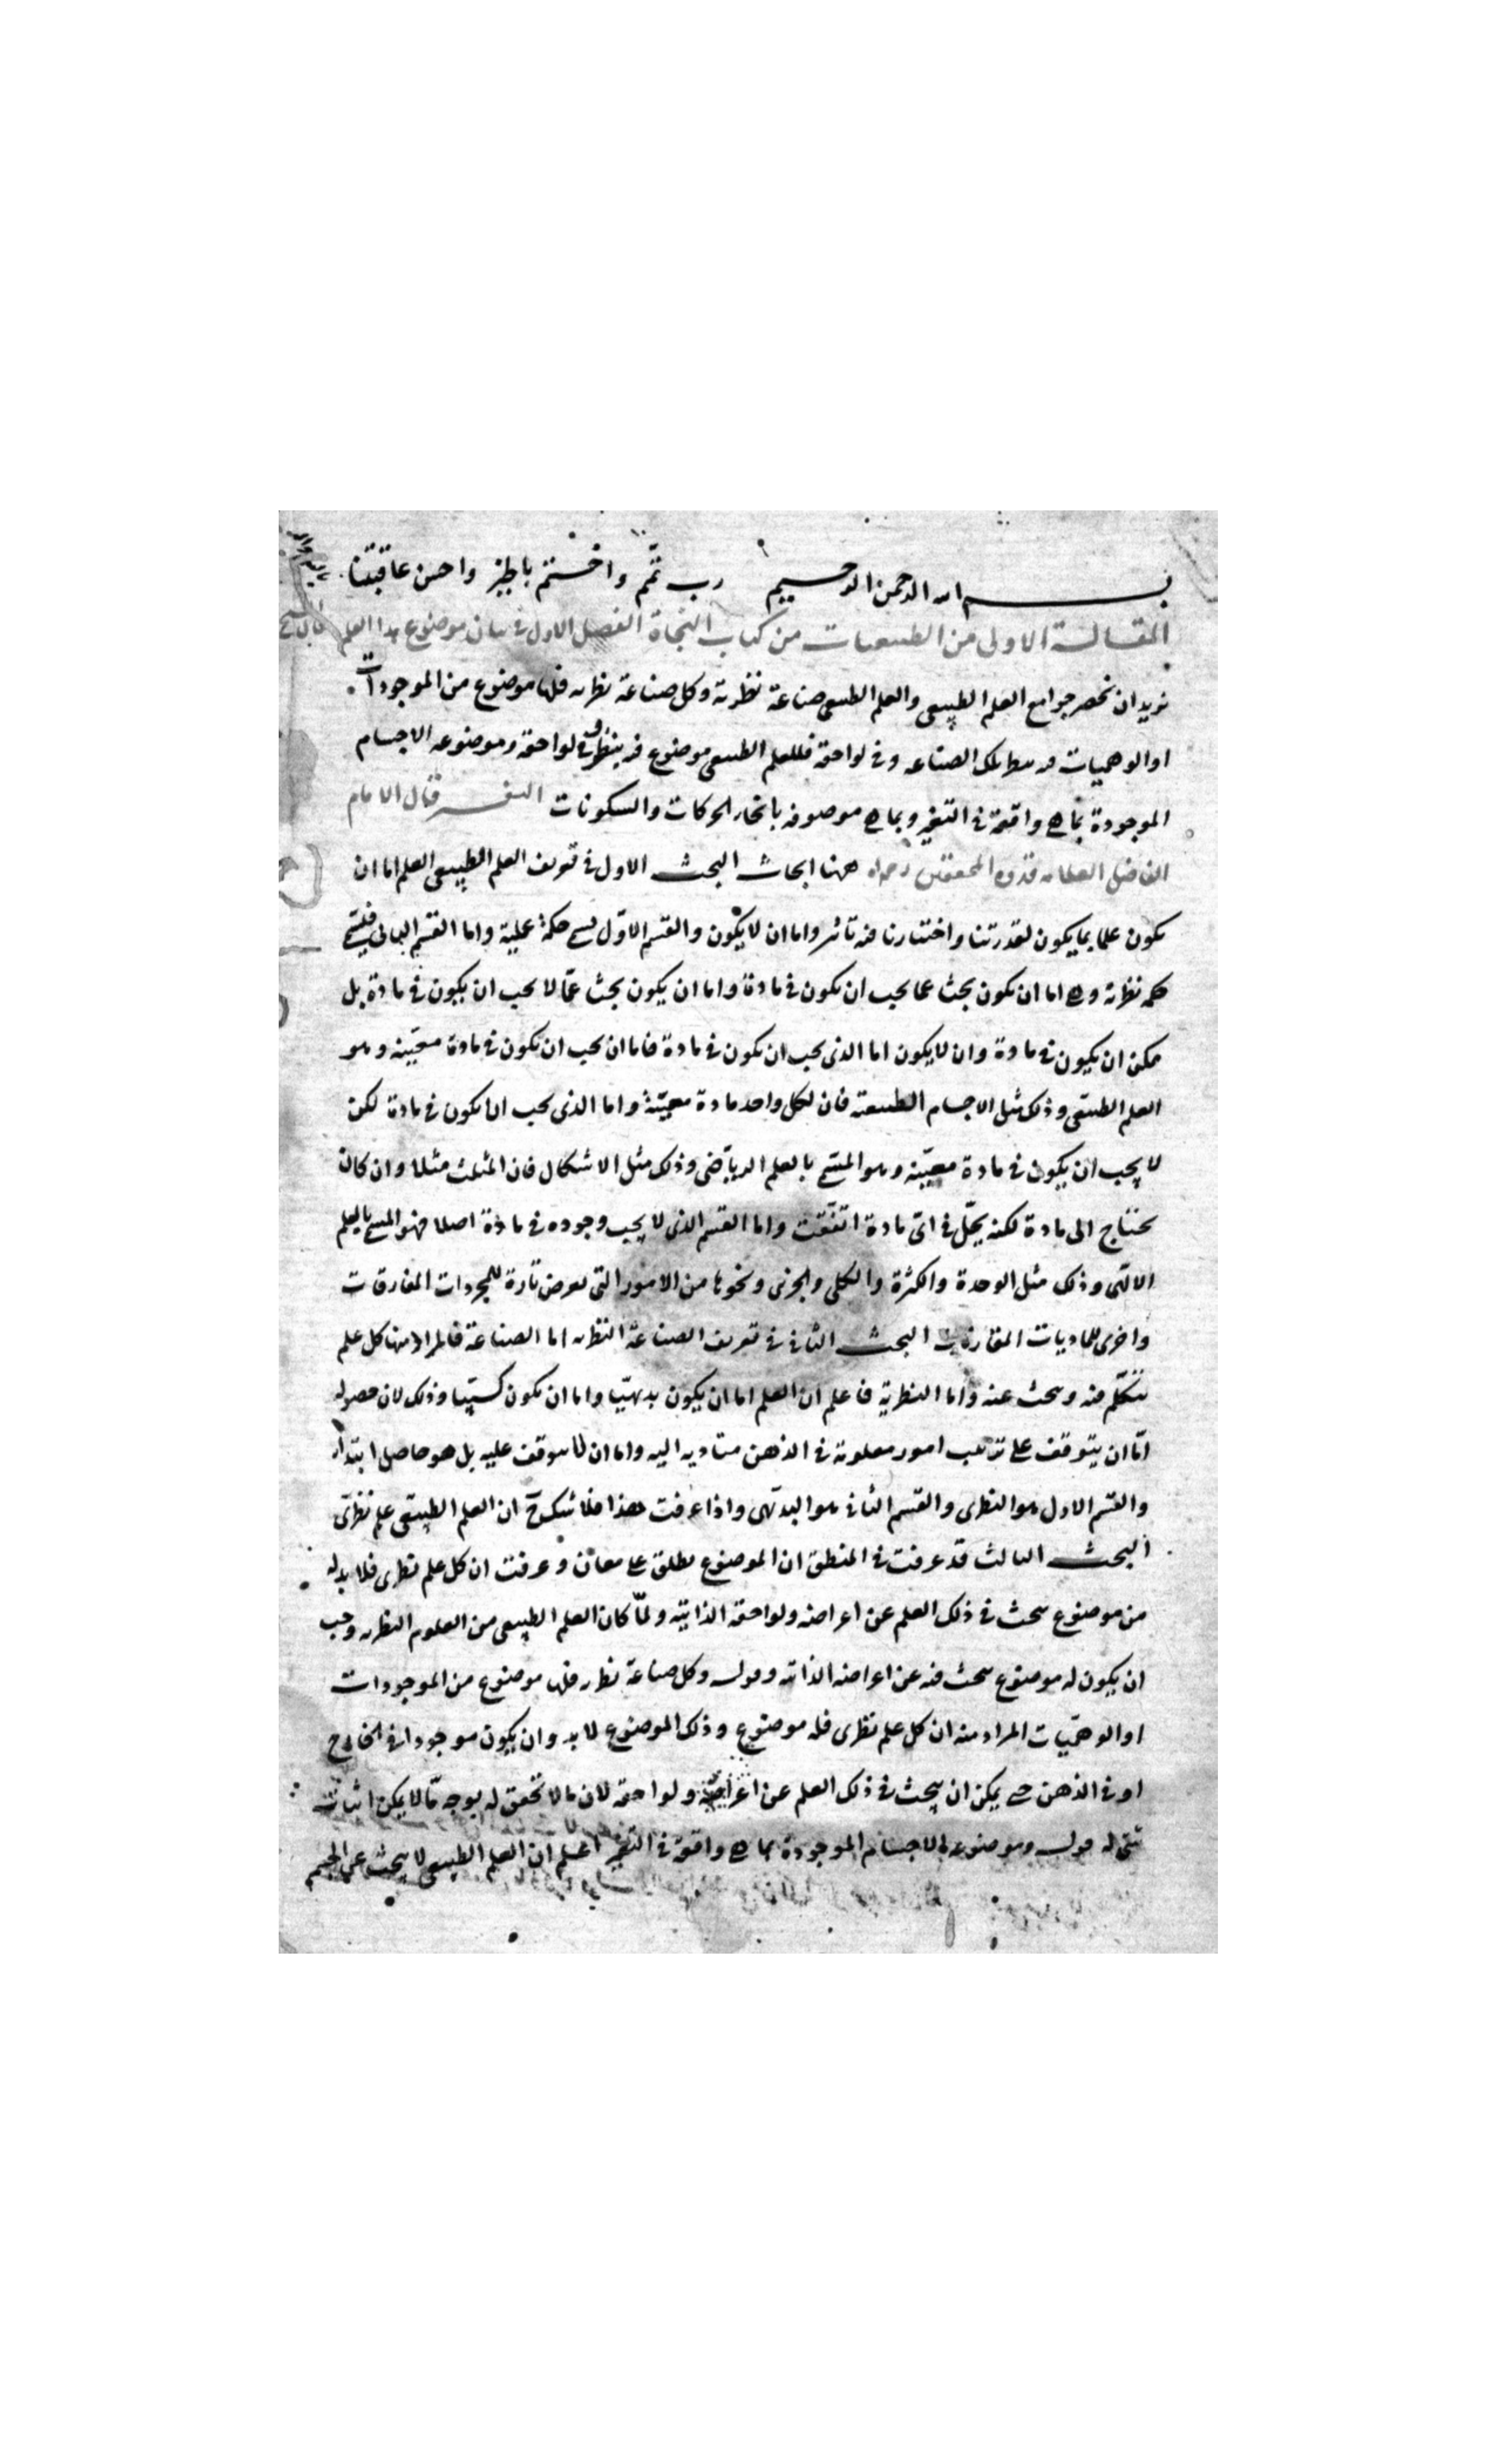 بسم الله الرحمن الرحيم رب تمم واختم بالخير واحسن عاقبتنا
المقالة الاولى من الطبيعيات من كتاب النجاة الفصل الاول في بيان موضوع هذا العلم قال الشيخ
نريد ان نحصر جوامع العلم الطبيعي والعلم الطبيعي صناعة نظرية وكل صناعة نظرية فلها موضوع من الموجودات
او الوهميات فيه ينظر تلك الصناعة وفي لواحقه فللعلم الطبيعي موضوع فيه ينظر وفي لواحقه وموضوعه الاجسام
الموجودة بما هي واقعة في التغير وبما هي موصوفة بانحاء الحركات والسكونات التفسير قال الامام
الفاضل العلامة قدوة المحققين رحمه الله ههنا ابحاث البحث الاول في تعريف العلم الطبيعي العلم اما ان
يكون علما بما يكون لقدرتنا واختيارنا فيه تاثير واما ان لا يكون والقسم الاول يسمى حكمة عملية واما القسم الثاني فيسمى
حكمة نظرية وهي اما ان تكون بحث عما يجب ان تكون في مادة واما ان يكون بحث عما لا يجب ان يكون في مادة بل
يمكن ان يكون في مادة وان لا يكون اما الذي يجب ان يكون في مادة فاما ان يجب ان تكون في مادة معينة وهو
العلم الطبيعي وذلك مثل الاجسام الطبيعية فان لكل واحد مادة معينة واما الذي يجب ان يكون في مادة لكن
لا يجب ان يكون في مادة معينة وهو المسمى بالعلم الرياضي وذلك مثل الاشكال فان المثلث مثلا وان كان
يحتاج الى مادة لكنه يحل في اي مادة اتفقت واما القسم الذي لا يجب وجوده في مادة اصلا فهو المسمى بالعلم
الالهي وذلك مثل الوحدة والكثرة والكلي والجزئي ونحوها من الامور التي تعرض تارة للمجردات المفارقات
واخرى للماديات المقارنات البحث الثاني في تعريف الصناعة النظرية اما الصناعة فالمراد منها كل علم
نتكلم فيه ونبحث عنه واما النظرية فاعلم ان العلم اما ان يكون بديهيا واما ان يكون كسبيا وذلك لان حصوله
اما ان يتوقف على ترتيب امور معلومة في الذهن متادية اليه واما ان لا يتوقف عليه بل هو حاصل ابتداء
والقسم الاول هو النظري والقسم الثاني هو البديهي واذا عرفت هذا فلا شك ان العلم الطبيعي علم نظري
البحث الثالث قد عرفت في المنطق ان الموضوع يطلق على معان وعرفت ان كل علم نظري فلا بد له
من موضوع يبحث في ذلك العلم عن اعراضه ولواحقه الذاتية ولما كان العلم الطبيعي من العلوم النظرية وجب
ان يكون له موضوع يبحث فيه عن اعراضه الذاتية وقوله وكل صناعة نظرية فلها موضوع من الموجودات
او الوهميات المراد منه ان كل علم نظري فله موضوع وذلك الموضوع لا بد وان يكون موجودا في الخارج
او في الذهن حتى يمكن ان يبحث في ذلك العلم عن اعراضه ولواحقه لان ما لا تحقق له بوجه ما لا يمكن اثبات
شيء له قوله وموضوعه الاجسام الموجودة بما هي واقعة في التغير اعلم ان العلم الطبيعي لا يبحث عن الجسم